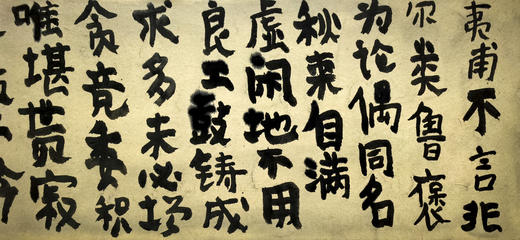 夷甫不言非
尔类鲁褒
为论偶同名
秋来自满
虚闲地不用
良工鼓铸成
求多未必增
贪竟委积
唯堪世寂